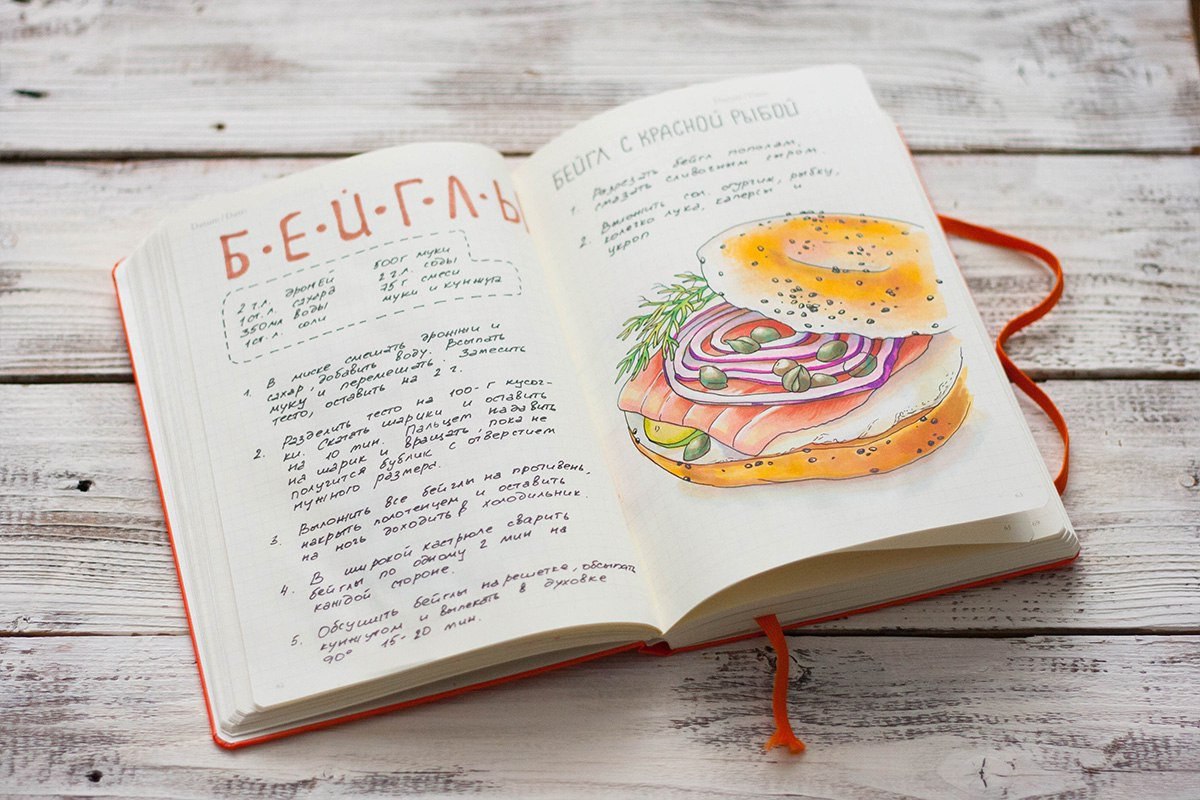 Б·Е·Й·Г·Л·Ы
2 ч.л. дрожжей 500г муки
1 ст. л. сахара 2 ч.л. соды
350мл воды 25 г смеси
1 ст. л. соли муки и кунжута
1. В миске смешать дрожжи и
сахар, добавить воду. Всыпать
муку и перемешать. Замесить
тесто, оставить на 2 г.
2. Разделить тесто на 100-г кусоч-
ки. Скатать шарики и оставить
на 10 мин. Пальцем надавить
на шарик и вращать, пока не
получится бублик с отверстием
нужного размера.
3. Выложить все бейглы на противень,
накрыть полотенцем и оставить
на ночь доходить в холодильник.
4. В широкой кастрюле сварить
бейглы по одному 2 мин на
каждой стороне.
5. Обсушить бейглы на решетке, обсыпать
кунжутом и выпекать в духовке
90° 15-20 мин.
БЕЙГЛ С КРАСНОЙ РЫБОЙ
1. Разрезать бейгл пополам,
смазать сливочным сыром.
2. Выложить сол. огурчик, рыбку,
колечко лука, каперсы и
укроп